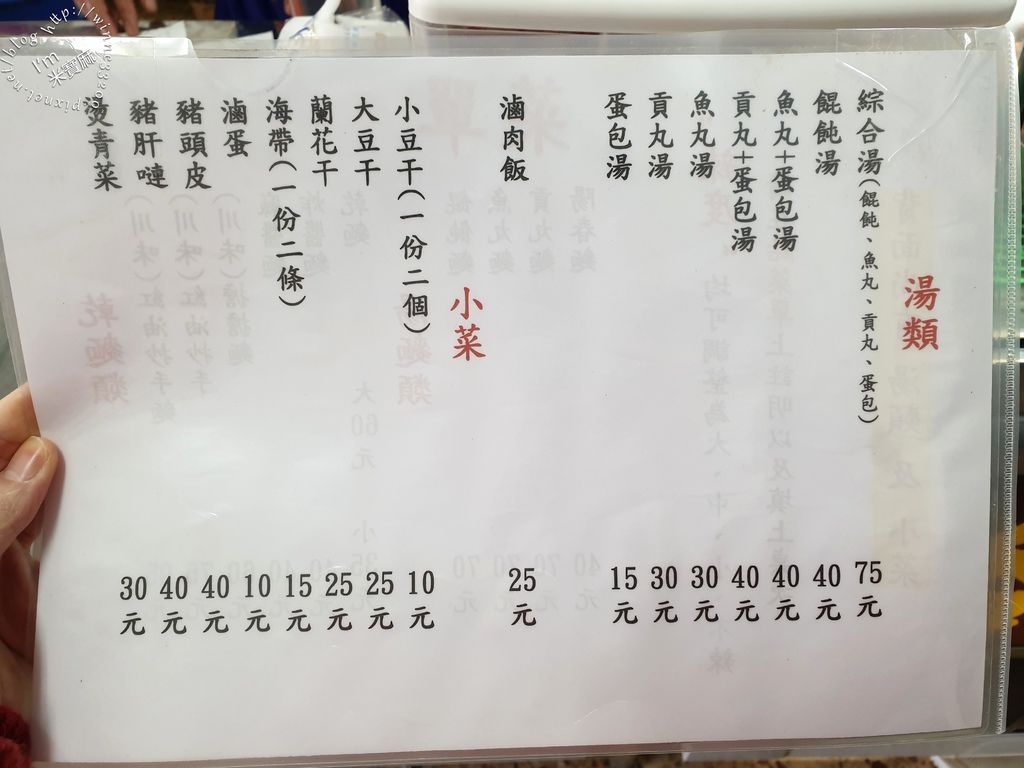 湯類
綜合湯(餛飩、魚丸、貢丸、蛋包) 75元
餛飩湯 40元
魚丸+蛋包湯 40元
貢丸+蛋包湯 40元
魚丸湯 30元
貢丸湯 30元
蛋包湯 15元
滷肉飯 25元
小菜
小豆干(一份二個) 10元
大豆干 25元
蘭花干 25元
海帶(一份二條) 15元
滷蛋 10元
豬頭皮 40元
豬肝嗹 40元
燙青菜 30元
I'm 米寶麻